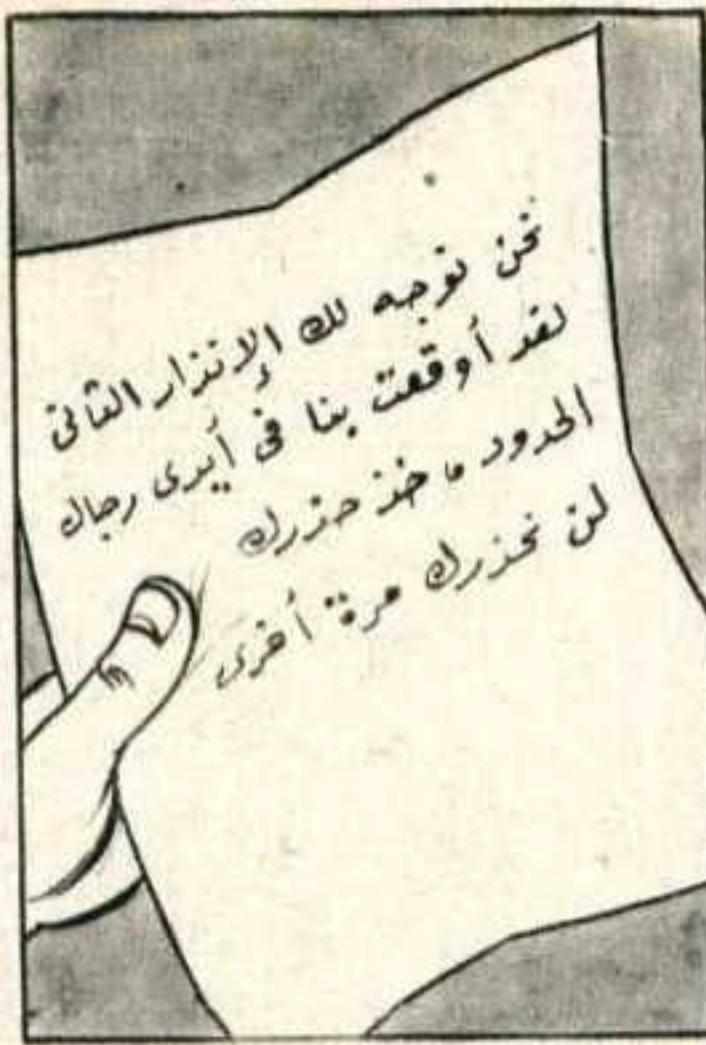 نحن نوجه لك الإنذار الثانى
لقد أوقعت بنا فى أيدى رجال
الحدود، خذ حذرك
لن نحذرك مرة أخرى